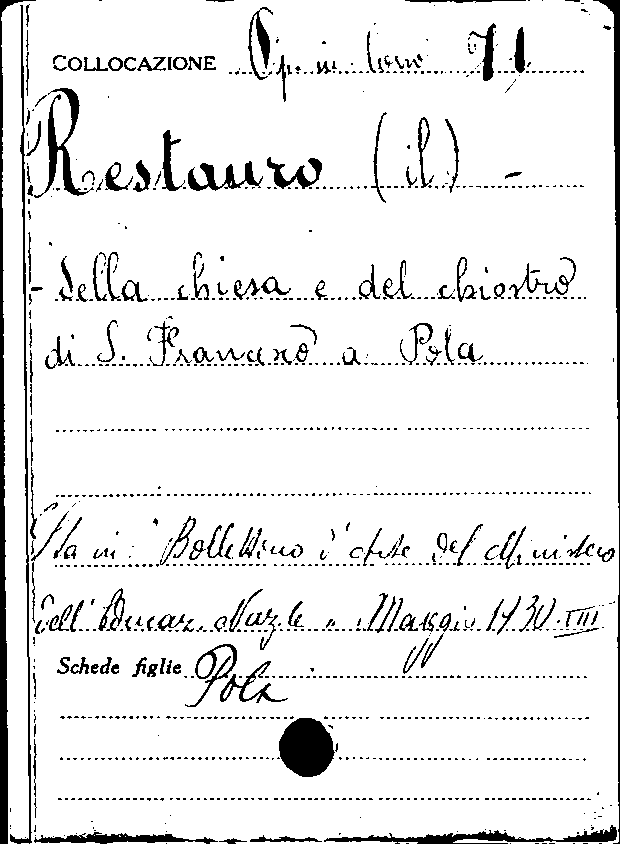 COLLOCAZIONE Op. in 71
Restauro (il) -
- della chiesa e del chiostro
di S. Francesco a Pola
Sta in: "Bollettino d'Arte del Ministero
dell'Educaz. Nazle" Maggio 1930. VIII
Schede figlie Pola